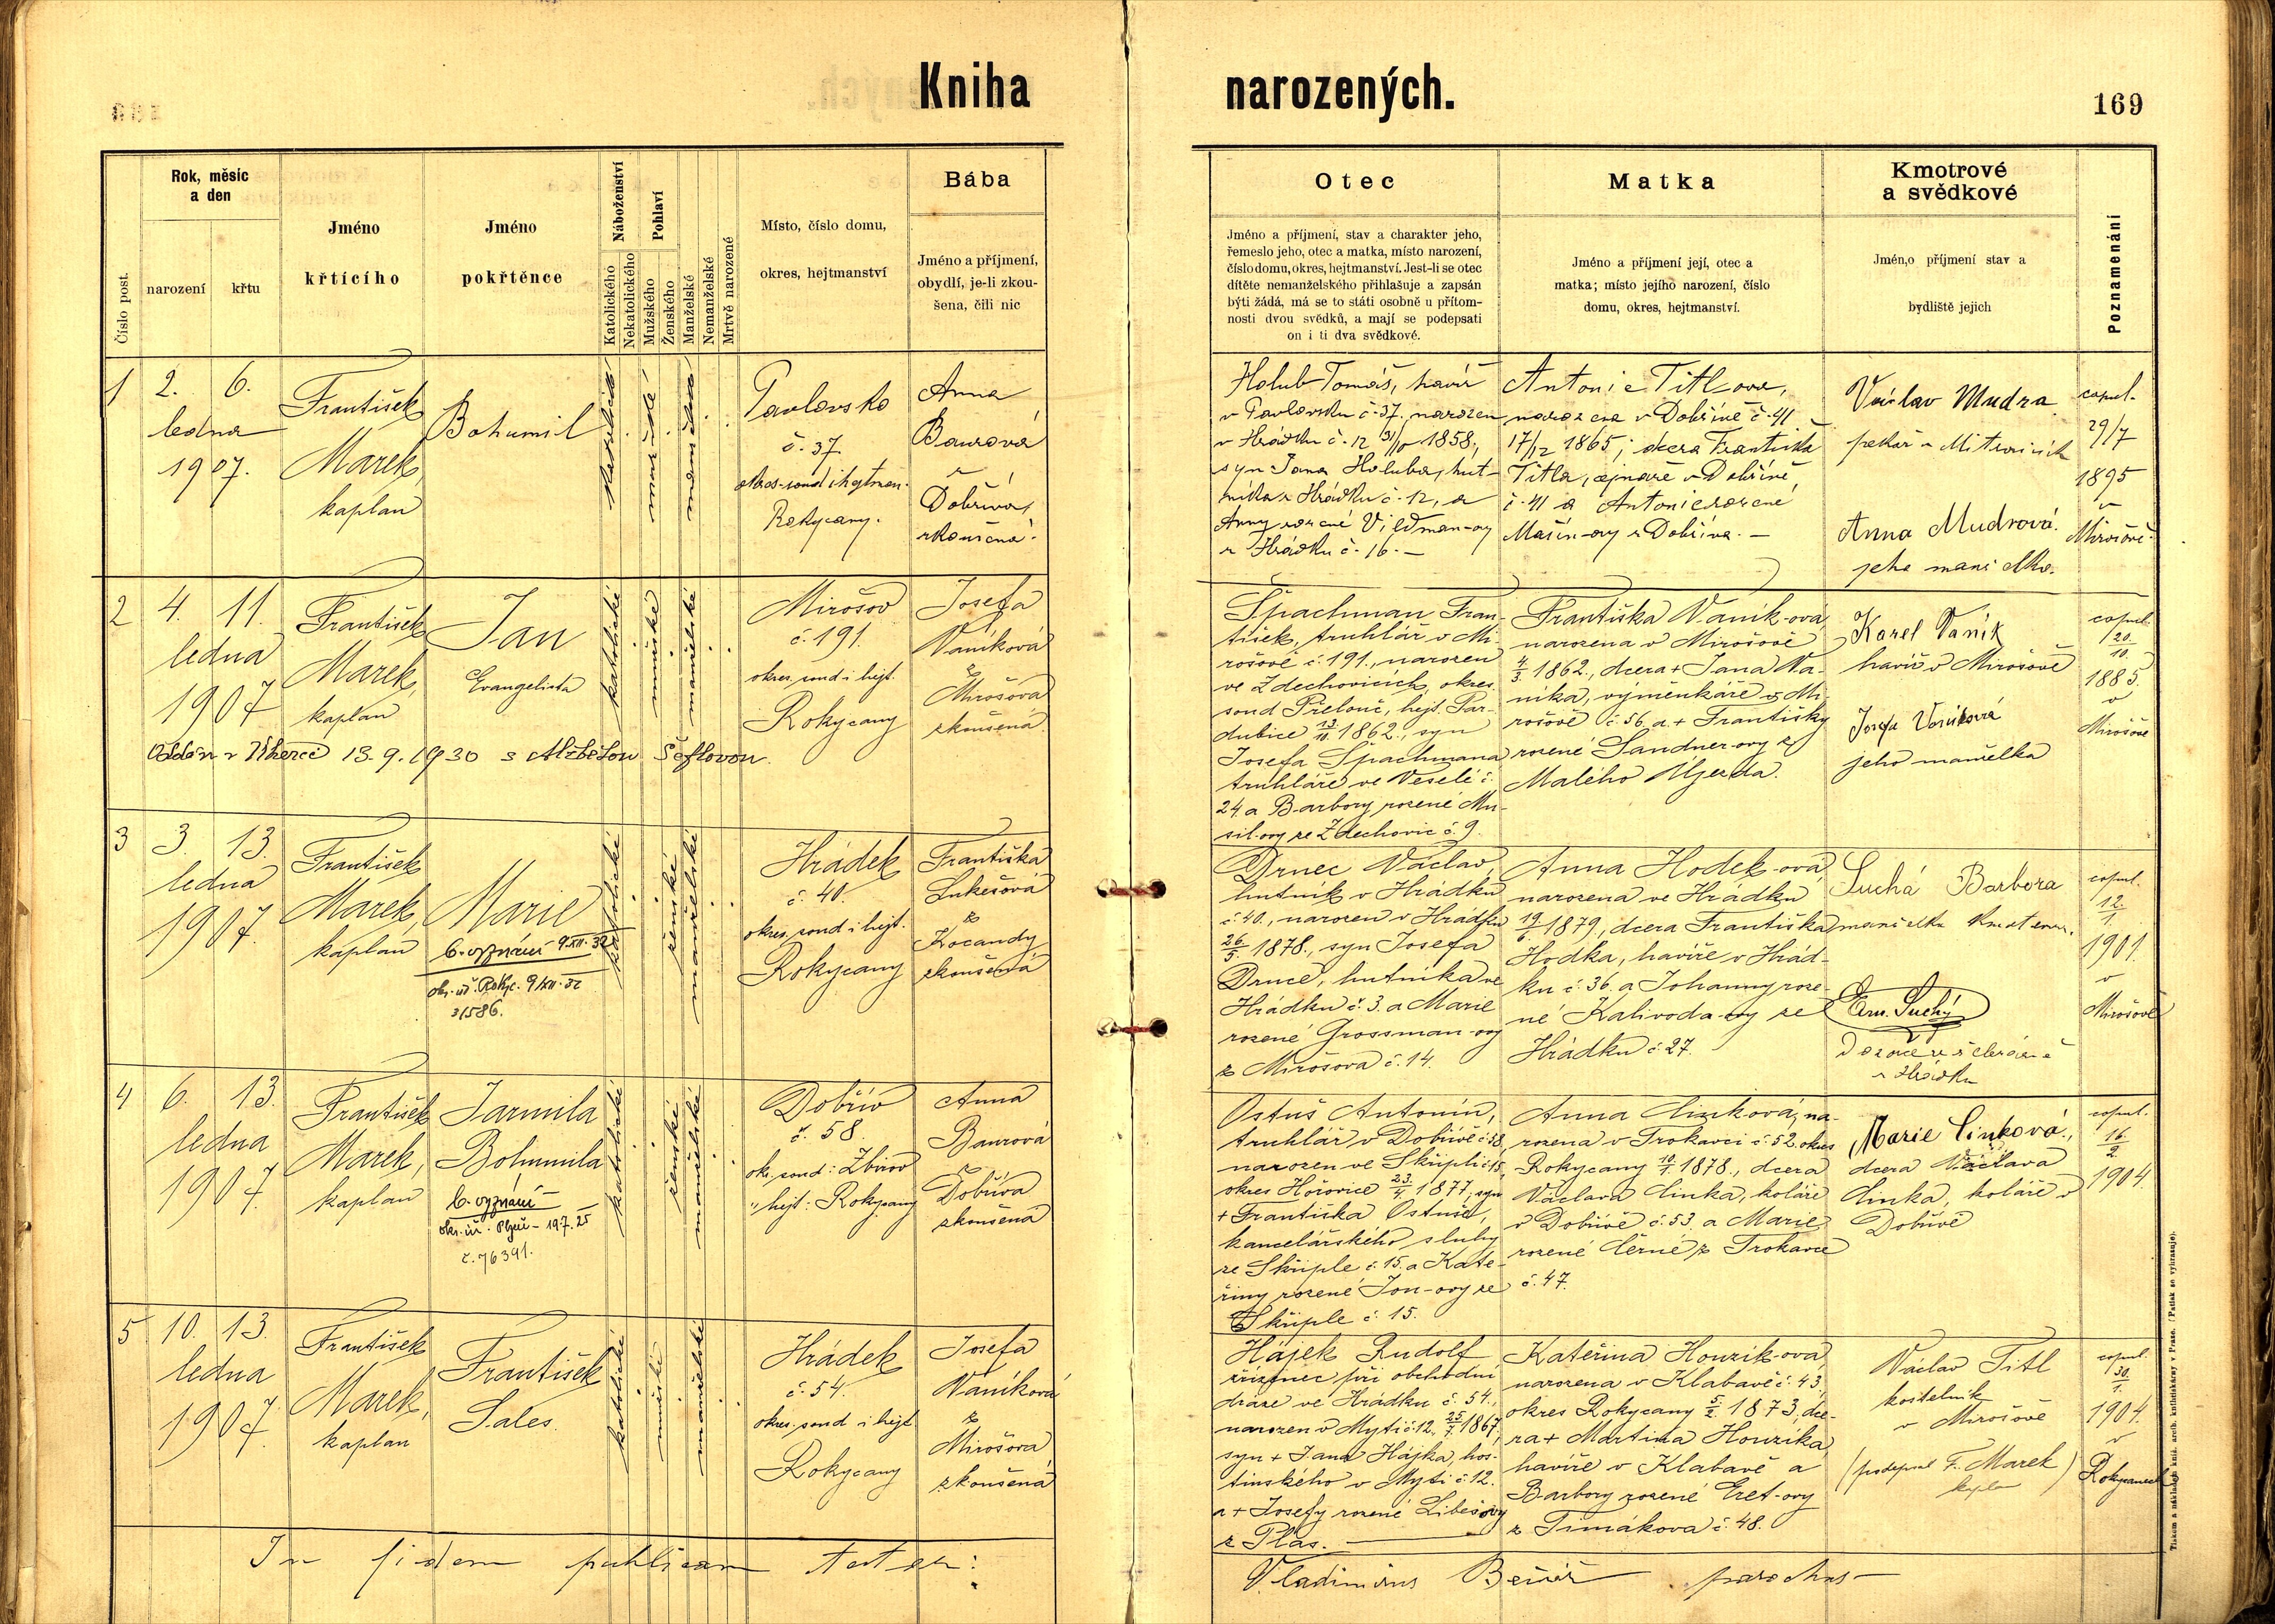 Kniha narozených.
169
Číslo post.
Rok, měsíc
a den
narození
křtu
Jméno
křtícího
Jméno
pokřtěnce
Náboženství
Katolického
Nekatolického
Pohlaví
Mužského
Ženského
Manželské
Nemanželské
Mrtvě narozené
Místo, číslo domu,
okres, hejtmanství
Bába
Jméno a příjmení,
obydlí, je-li zkou-
šena, čili nic
Otec
Jméno a příjmení, stav a charakter jeho,
řemeslo jeho, otec a matka, místo narození,
číslo domu, okres, hejtmanství. Jest-li se otec
dítěte nemanželského přihlašuje a zapsán
býti žádá, má se to státi osobně u přítom-
nosti dvou svědků, a mají se podepsati
on i ti dva svědkové.
Matka
Jméno a příjmení její, otec a
matka; místo jejího narození, číslo
domu, okres, hejtmanství.
Kmotrové
a svědkové
Jmén,o příjmení stav a
bydliště jejich
Poznamenání
1
2. 6.
ledna
1907.
František
Marek,
kaplan
Bohumil
katolické
mužské
manželské
Pavlovsko
č. 37
okres. soud i hejtman.
Rokycany.
Anna
Baurová
z
Dobříva,
zkoušená.
Holub Tomáš, havíř
v Pavlovsku č. 37. narozen
v Hrádku č. 12 1858,
syn Jana Holuba, hut-
níka z Hrádku č. 12, a
Anny rozené Vildman-ovy
z Hrádku č. 16. —
Antonie Titlova,
narozená v Dobřívě č. 41
17/12 1865; dcera Františka
Titla, v Dobřívě
č. 41 a Antonie rozené
Mašín-ovy z Dobříva. —
Václav Mudra
pekař v
Anna Mudrová.
jeho manželka.
copul.
29/7
1895
v
Mirošově.
2
4. 11.
ledna
1907
František
Marek,
kaplan
Jan
Evangelista
katolické
mužské
manželské
Mirošov
č. 191.
okres. soud i hejt.
Rokycany
Josefa
Vaníková
z
Mirošova
zkoušená.
Oddán v 13.9.1930 s Alžbětou Šeflovou.
Špachman Fran-
tišek, truhlář v Mi-
rošově č. 191., narozen
ve Zdechovicích, okres.
soud Přelouč, hejt. Par-
dubice 13/11 1862., syn
Josefa Špachmana
truhláře ve Veselí č.
24 a Barbory rozené Mu-
sil-ovy ze Zdechovic č. 9.
Františka Vaník-ová
narozena v Mirošově
4/3 1862., dcera + Jana Va-
níka, výměnkáře v Mi-
rošově č. 56. a + Františky
rozené Sandner-ovy z
Malého Újezda.
Karel Vaník
havíř v Mirošově
Josefa Vaníková
jeho manželka
copul.
20/10.
1885.
v
Mirošově
3
3. 13.
ledna
1907.
František
Marek,
kaplan
Marie
b. vyznání 9.XII.32
okr. úř. Rokyc. 9/XII.32
31586.
katolické
ženské
manželské
Hrádek
č. 40.
okres. soud i hejt.
Rokycany
Františka
Lukešová
z
Kocandy
zkoušená
Drnec Václav,
hutník v Hrádku
č. 40., narozen v Hrádku
26/5 1878., syn Josefa
Drnce, hutníka ve
Hrádku č. 3. a Marie
rozené Grossman-ovy
z Mirošova č. 14.
Anna Hodek-ová,
narozena ve Hrádku
19/6 1879, dcera Františka
Hodka, havíře v Hrád-
ku č. 36. a Johanny roze-
né Kalivoda-ovy ze
Hrádku č. 27.
Suchá Barbora
manželka
Suchý
v Hrádku
copul.
12/1.
1901.
v
Mirošově
4
6. 13.
ledna
1907.
František
Marek,
kaplan
Jarmila
Bohumila
b. vyznání
okr. úř. Plzeň – 19.7.25
č. 76391.
katolické
ženské
manželské
Dobřív
č. 58.
ok. soud: Zbirov
" hejt: Rokycany
Anna
Baurová
z
Dobříva
zkoušená
Ostuš Antonín,
truhlář v Dobřívě č. 58,
narozen ve Skřipli č. 15,
okres Hořovice 23/4. 1877, syn
+ Františka Ostuše,
kancelářského sluhy
ze Skřiple č. 15. a Kate-
řiny rozené Jon-ovy ze
Skřiple č. 15.
Anna Cinková, na-
rozena v Trokavci č. 52. okres
Rokycany 10/1 1878., dcera
Václava Cinka, koláře
v Dobřívě č. 53. a Marie
rozené Černé z Trokavce
č. 47.
Marie Cinková,
dcera Václava
Cinka, koláře v
Dobřívě
copul.
16/2
1904.
5
10. 13.
ledna
1907.
František
Marek,
kaplan
František
Sales.
katolické
mužské
manželské
Hrádek
č. 54.
okres. soud i hejt
Rokycany
Josefa
Vaníková
z
Mirošova
zkoušená
Hájek Rudolf
zřízenec při obchodní
dráze ve Hrádku č. 54.,
narozen v Mýti č. 12. 25/7. 1867,
syn + Jana Hájka, hos-
tinského v Mýti č. 12.
a + Josefy rozené Libešovy
z Plas.
Kateřina Houzík-ová,
narozena v Klabavě č. 43,
okres Rokycany 5/2. 1873, dce-
ra + Martina Houzíka,
havíře v Klabavě a
Barbory rozené Eret-ovy
z Timákova č. 48.
Václav Titl
kostelník
v Mirošově
(podepsal F. Marek
kaplan)
copul.
30/1.
1904.
v
Rokycanech
In fidem publicam testor:
Vladimirus parochus
Tiskem a nákladem kníž. arcib. knihtiskárny v Praze. (Patisk se vyhrazuje).